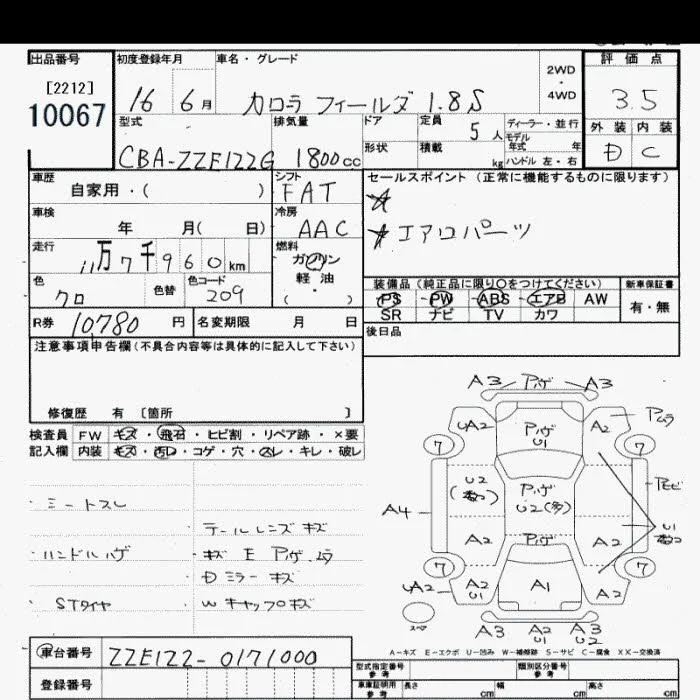 出品番号 初度登録年月 車名・グレード 2WD ・ 4WD 評価点
[2212]
10067
16 6月 カローラ フィールダー 1.8S 3.5
型式 排気量 ドア 定員 5人 ディーラー・並行 外装 内装
モデル年式 年
CBA-ZZE122G 1800cc 形状 積載 kg ハンドル 左・右 D C
車歴 シフト セールスポイント (正常に機能するものに限ります)
自家用・( ) FAT
車検 冷房
年 月( 日) AAC エアロパーツ
走行 燃料
11万7千960km ガソリン
軽・油
( )
色 色替 色コード 装備品(純正品に限り○をつけてください) 新車保証書
クロ 209 PS PW ABS エアB AW 有・無
SR ナビ TV カワ
R券 10780円 名変期限 月 日 後日品
注意事項申告欄(不具合内容等は具体的に記入して下さい)
修復歴 有 〔箇所 〕
検査員 FW キズ・飛石・ヒビ割・リペア跡・×要
記入欄 内装 キズ・汚レ・コゲ・穴・スレ・キレ・破レ
・シートスレ
・テールレンズ キズ
・ハンドルハゲ
・Dミラー キズ
・STタイヤ
・Wキャップ キズ
A3 Pハゲ A3
UA2 PハゲU1 A2 Pムラ
7 7
U2 Pハゲ U2(多) Pモヒ
A4 A2 Pハゲ A2 U1
7 7
UA2 A2 U1 A1 A2
スペア
A3 A2 U1 A3 U2
A-キズ E-エクボ U-凹み W-補修跡 S-サビ C-腐食 XX-交換済
車台番号 ZZE122-0171000
型式指定番号 参考 類別区分番号 参考
登録番号
車庫証明用 参考 長さ cm 幅 cm 高さ cm